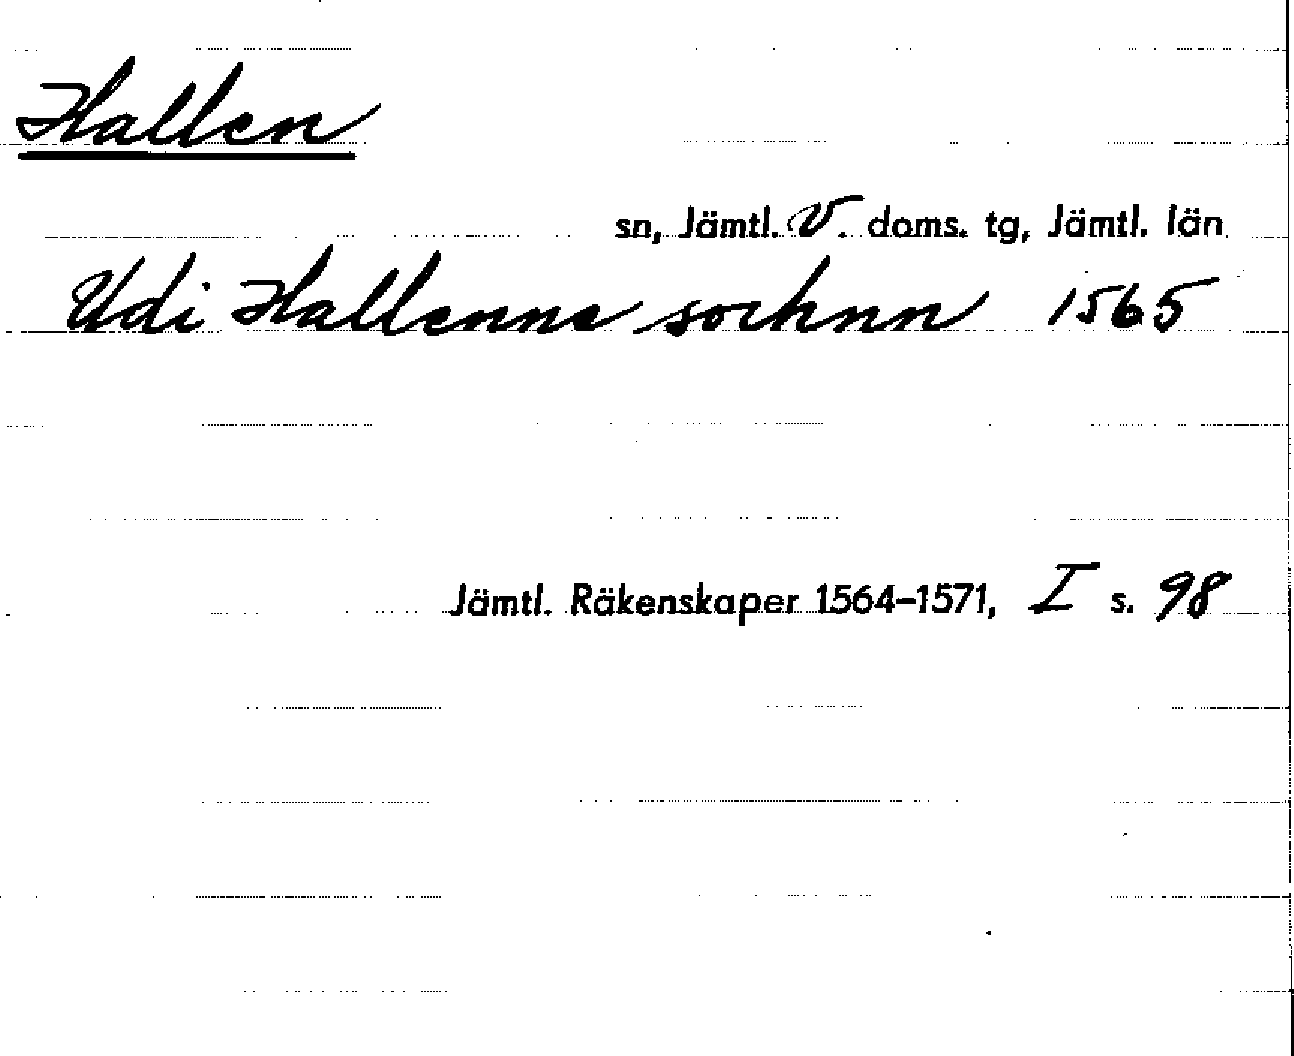 Hallen
sn, Jämtl. V. doms. tg, Jämtl. län
Udi Hallenne socknn 1565
Jämtl. Räkenskaper 1564-1571, I s. 98